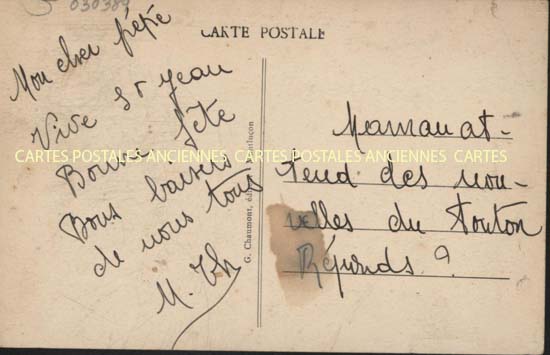 030389
CARTE POSTALE
Mon cher pépé
Vive St Jean
Bonne fête
Bons baisers
de nous tous
M. Th
G. Chaumont, éd
Maman at-
tend des nou-
velles du tonton
Réponds ?
CARTES POSTALES ANCIENNES CARTES POSTALES ANCIENNES CARTES